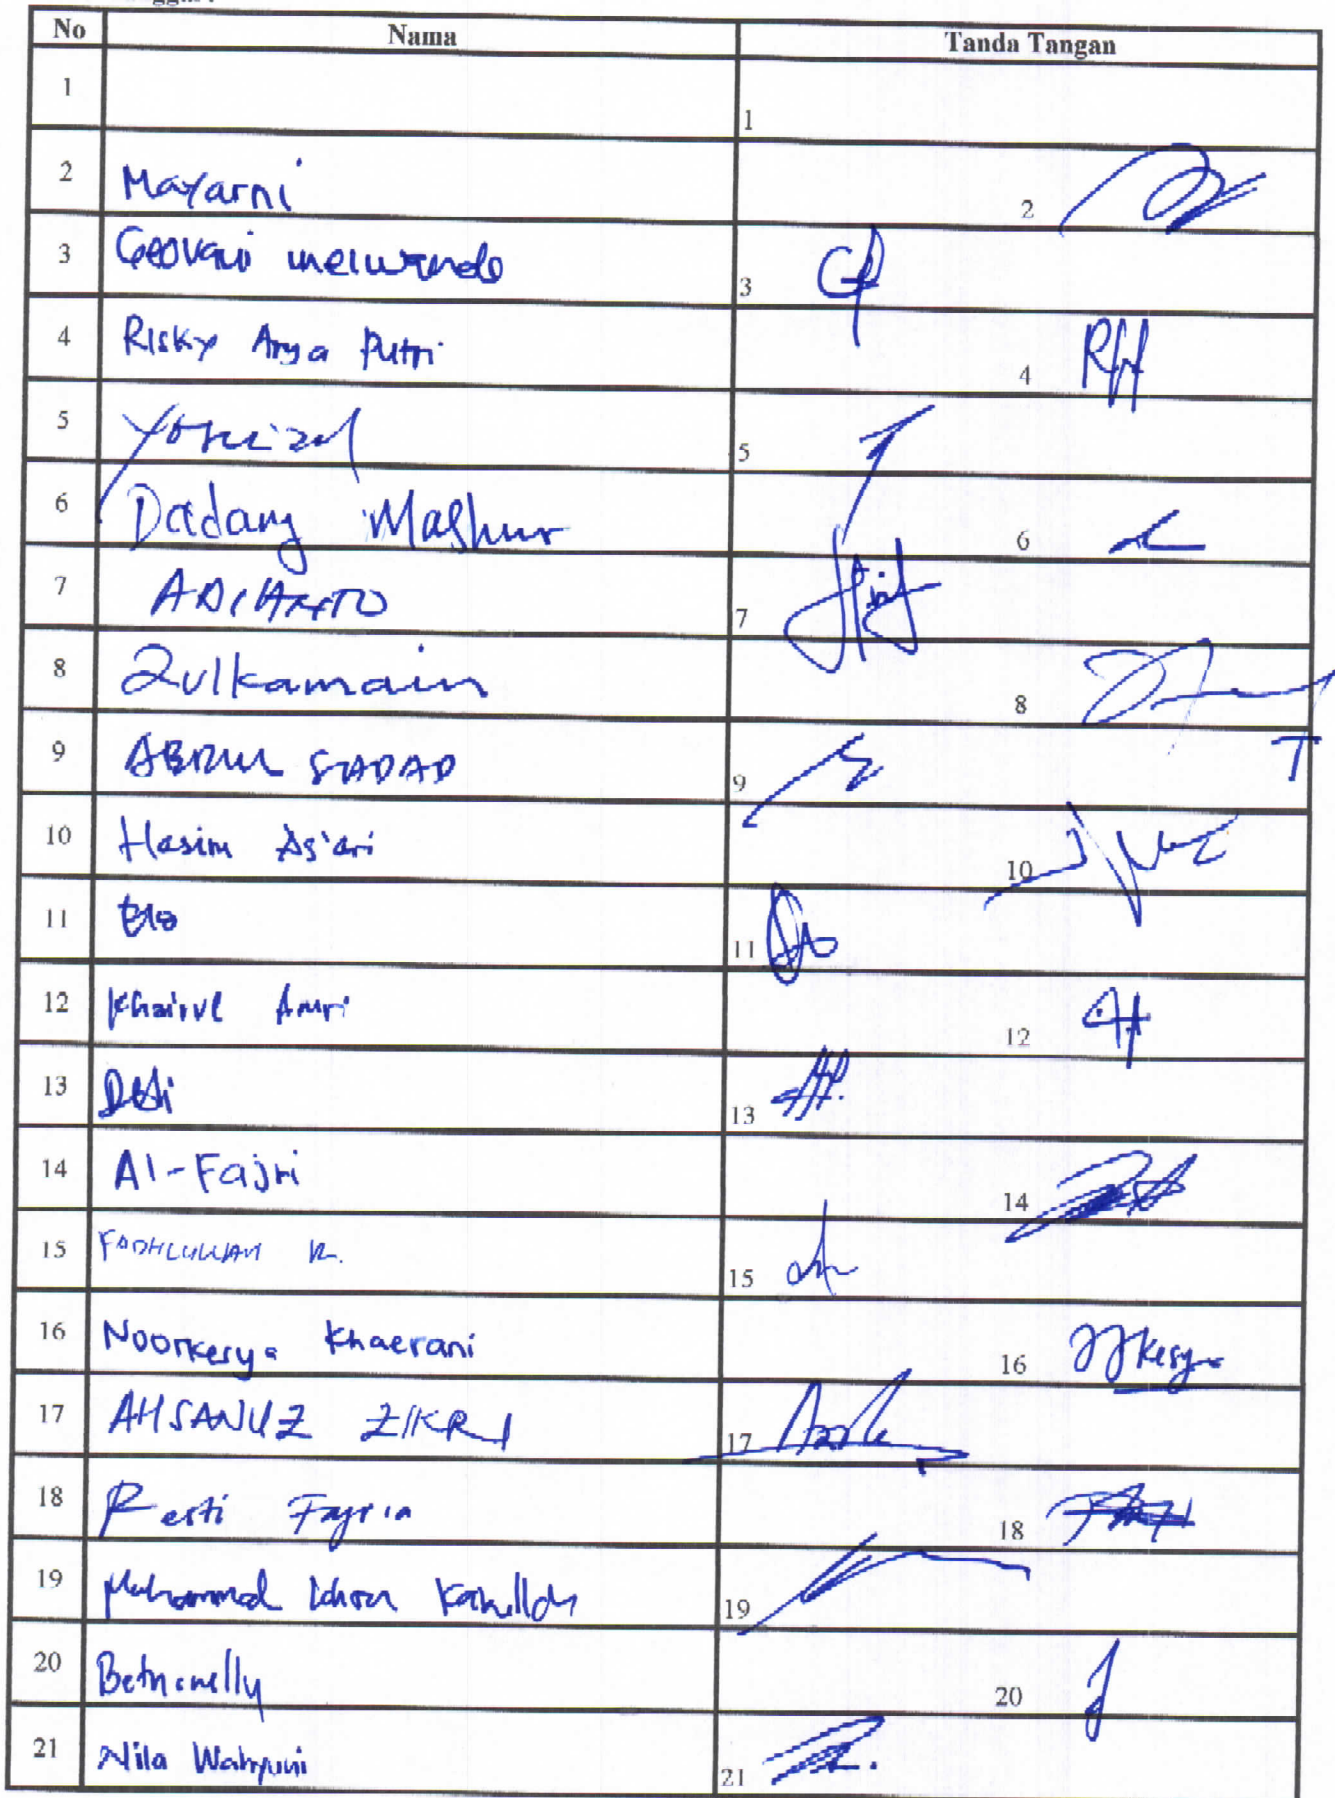 No Nama Tanda Tangan
1 1
2 Mayarni 2
3 Geovani Meiwanda 3
4 Risky Arya Putri 4
5 5
6 Dadang Mashur 6
7 ADIANTO 7
8 Zulkarnain 8
9 ABDUL SADAD 9
T
10 Hasim As'ari 10
11 11
12 Khairul Amri 12
13 13
14 Al-Fajri 14
15 FADHLULLAH R. 15
16 Noorkesya Khaerani 16 Kesya
17 AHSANUZ ZIKRI 17
18 Resti Fajria 18
19 Muhammad 19
20 20
21 Nila Wahyuni 21